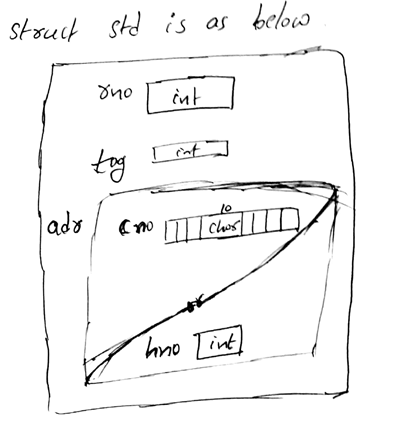 struct std is as below
rno int
tag int
adr cno 10 char
hno int